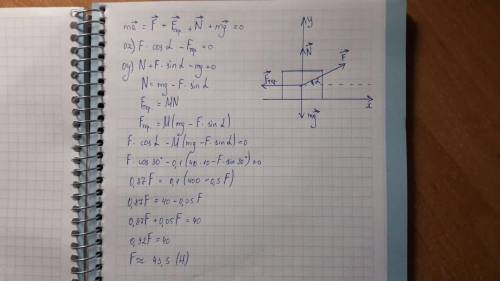 ma⃗ = F⃗ + F⃗тр. + N⃗ + mg⃗ = 0
ox) F · cos α − Fтр. = 0
oy) N + F · sin α − mg = 0
N = mg − F · sin α
Fтр. = MN
Fтр. = M(mg − F · sin α)
F · cos α − M(mg − F · sin α) = 0
F · cos 30° − 0,1(40 · 10 − F · sin 30°) = 0
0,87F = 0,1(400 − 0,5F)
0,87F = 40 − 0,05F
0,87F + 0,05F = 40
0,92F = 40
F ≈ 43,5 (Н)
y
N⃗
F⃗
F⃗тр.
α
x
mg⃗